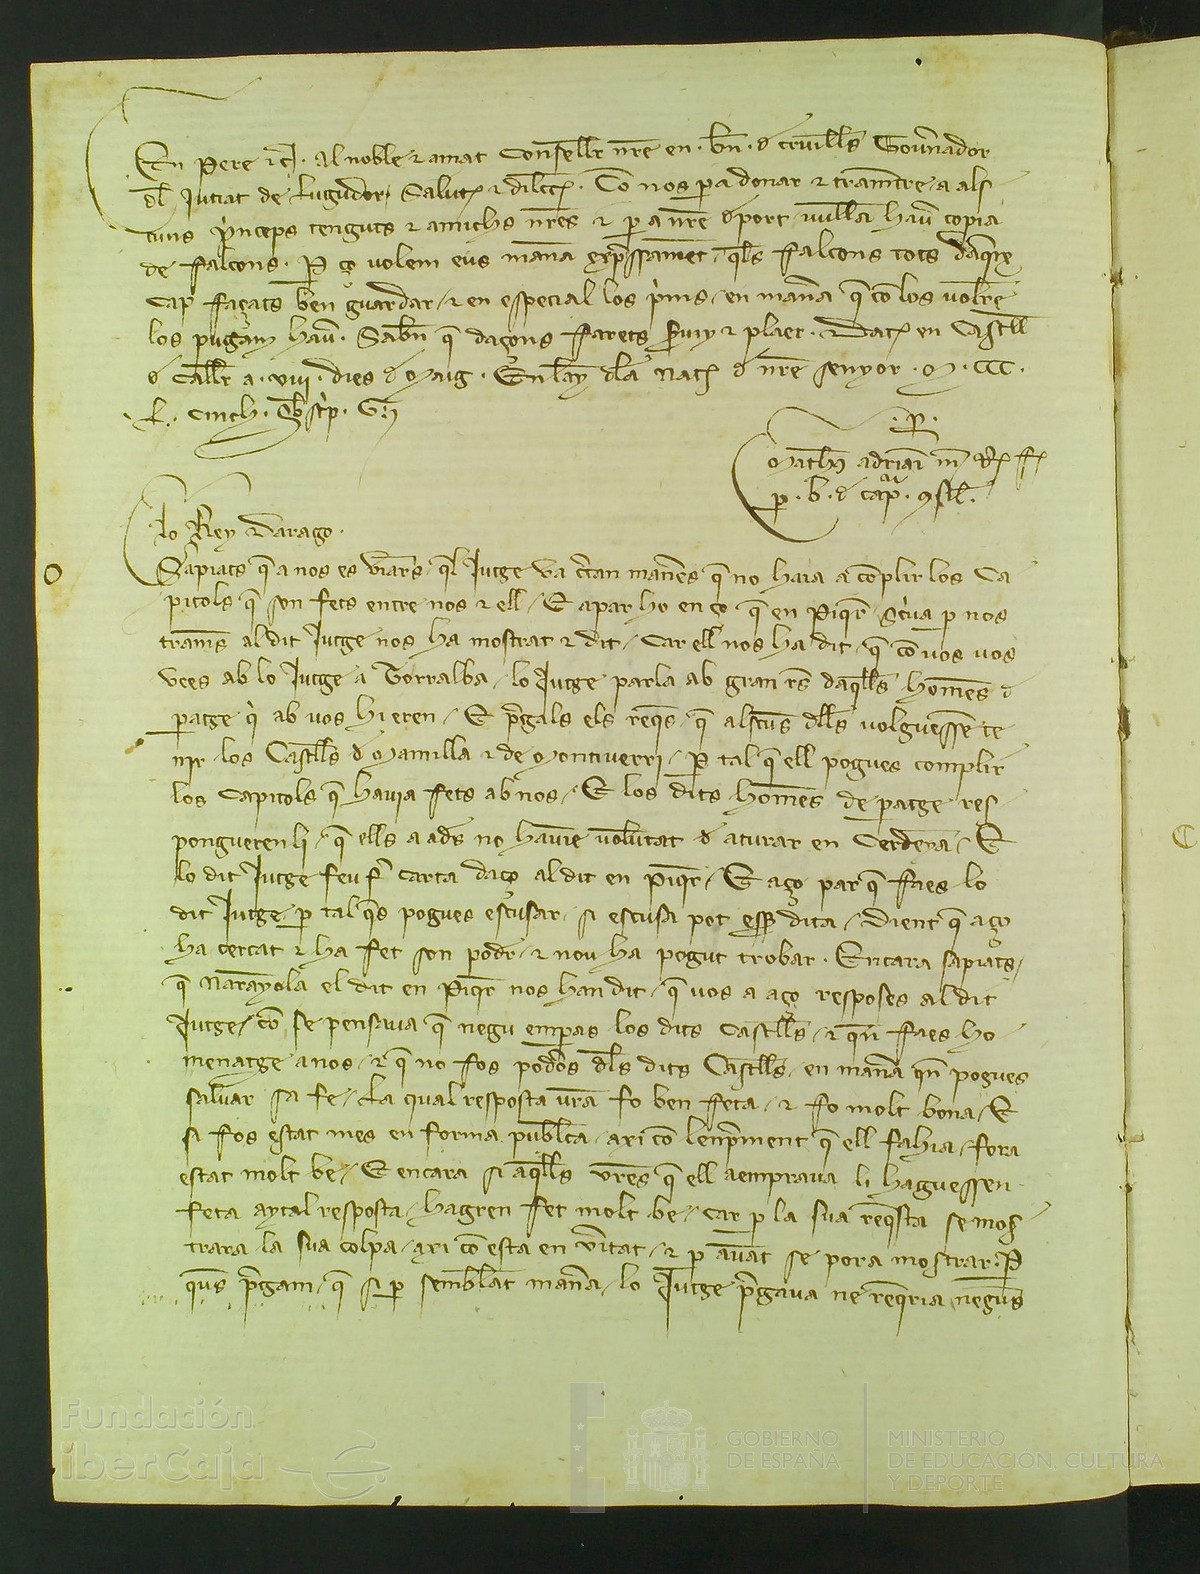 En Pere etc. Al noble e amat Conseller nre en .bn. d cruills Gou'nador
dl Jutjat de Lugudor Salut e dilecc. Com nos p a donar e trametre a als
cuns princeps tenguts e amichs nres e p a nre deport vullam hau' copia
de falcons. P ço volem eus manam expressament qls falcons tots daqxe
cap façats ben guardar e en especial los prims en mana q com los volre
los pugam hau'. Saben q daçons farets seruey e plaer. Dat en Castell
d Caller a .viii. dies d Maig. En lany dla Nat d nre senyor .M.CCC.
L. cinch. Subscrip. G.
.P.
Matheus adriani m
p .b. d cap.
Lo Rey Darago.
Sapiats q a nos es viares ql Jutge va cercan maneres q no haia a complir los Ca
pitols q son fets entre nos e ell. E apar ho en ço q en Piqr scriua p nos
trames al dit Jutge nos ha mostrat e dit. Car ell nos ha dit q com vos vos
vees ab lo Jutge a Torralba lo Jutge parla ab gran res daqlls homens d
paratge qi ab vos hi eren. E pregals els reqes q alscuns dlls volguessen te
nir los Castells d Mamilla e de Montiuerri. P tal q ell pogues complir
los Capitols q hauia fets ab nos. E los dits homens de paratge res
pongueren li q ells a ades no hauien voluntat d aturar en Cerdenya. E
lo dit Jutge feu fer carta daço al dit en Piqr. E aço par q faes lo
dit Jutge p tal qs pogues escusar si escusa pot esser dita. Dient q aço
ha cercat e ha fet son poder e nou ha pogut trobar. Encara sapiats
q Narayola el dit en Piqr nos han dit q vos a aço resposes al dit
Jutge com se pensaua q negu empras los dits Castells e qen faes ho
menatge a nos e q no fos poderos dls dits Castells en mana qen pogues
saluar sa fe. La qual resposta vra fo ben feta e fo molt bona. E
si fos estat mes en forma publica axi com lenprement q ell fahia fora
estat molt be. E encara si aqlls vres q ell aempraua li haguessen
feta aytal resposta hagren fet molt be. Car p la sua reqesta se mos
trara la sua colpa axi com esta en veritat e p auant se pora mostrar. P
queus pregam q si p semblant mana lo Jutge pregaua ne reqeria neguns
Fundación
iberCaja
GOBIERNO
DE ESPAÑA
MINISTERIO
DE EDUCACIÓN, CULTURA
Y DEPORTE